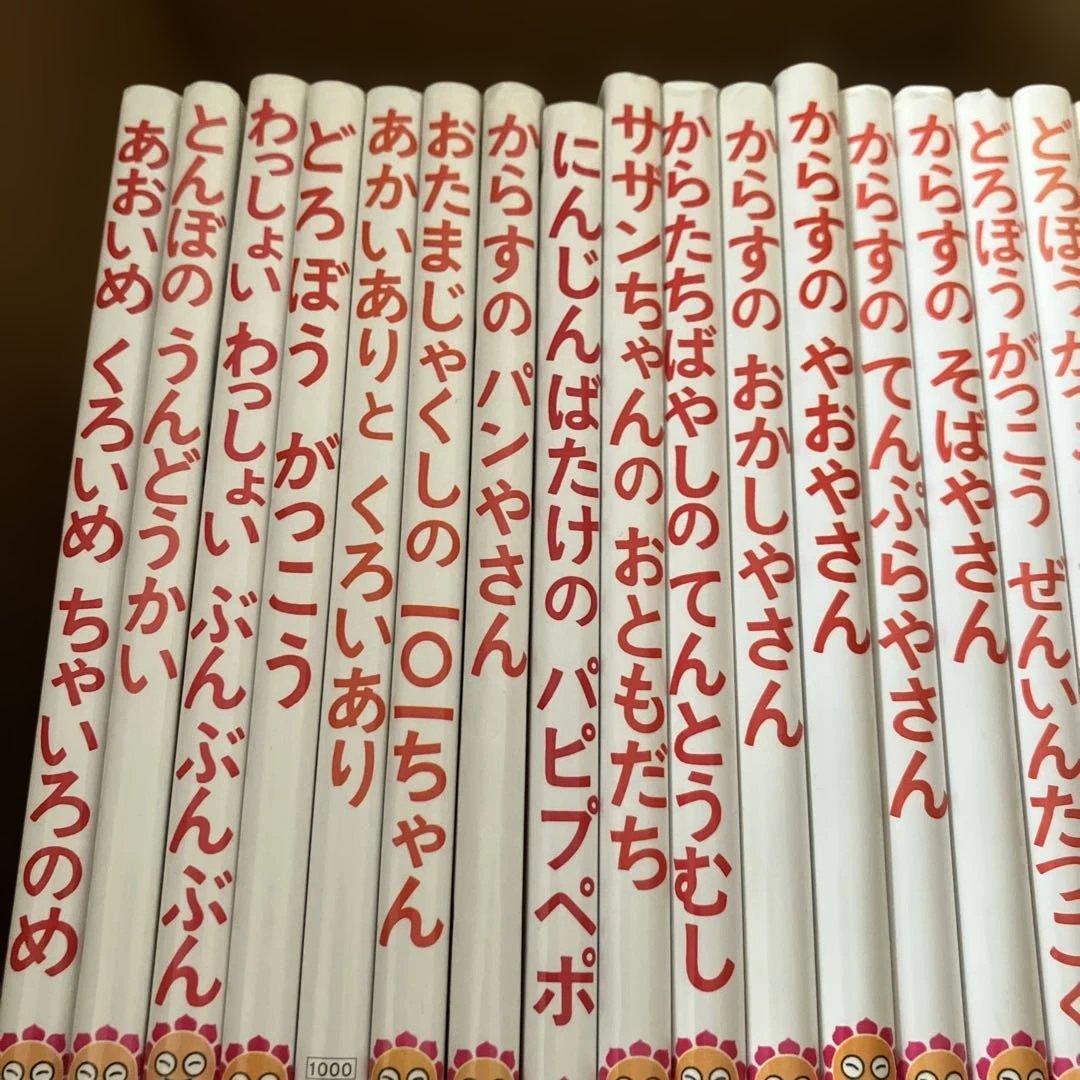 あおいめ くろいめ ちゃいろのめ
とんぼの うんどうかい
わっしょい わっしょい ぶんぶんぶん
どろぼう がっこう
あかいありと くろいあり
おたまじゃくしの 一〇一ちゃん
からすの パンやさん
にんじんばたけの パピプペポ
サザンちゃんの おともだち
からたちばやしの てんとうむし
からすの おかしやさん
からすの やおやさん
からすの てんぷらやさん
からすの そばやさん
どろぼう がっこう ぜんいんだつごく
どろぼう
1000